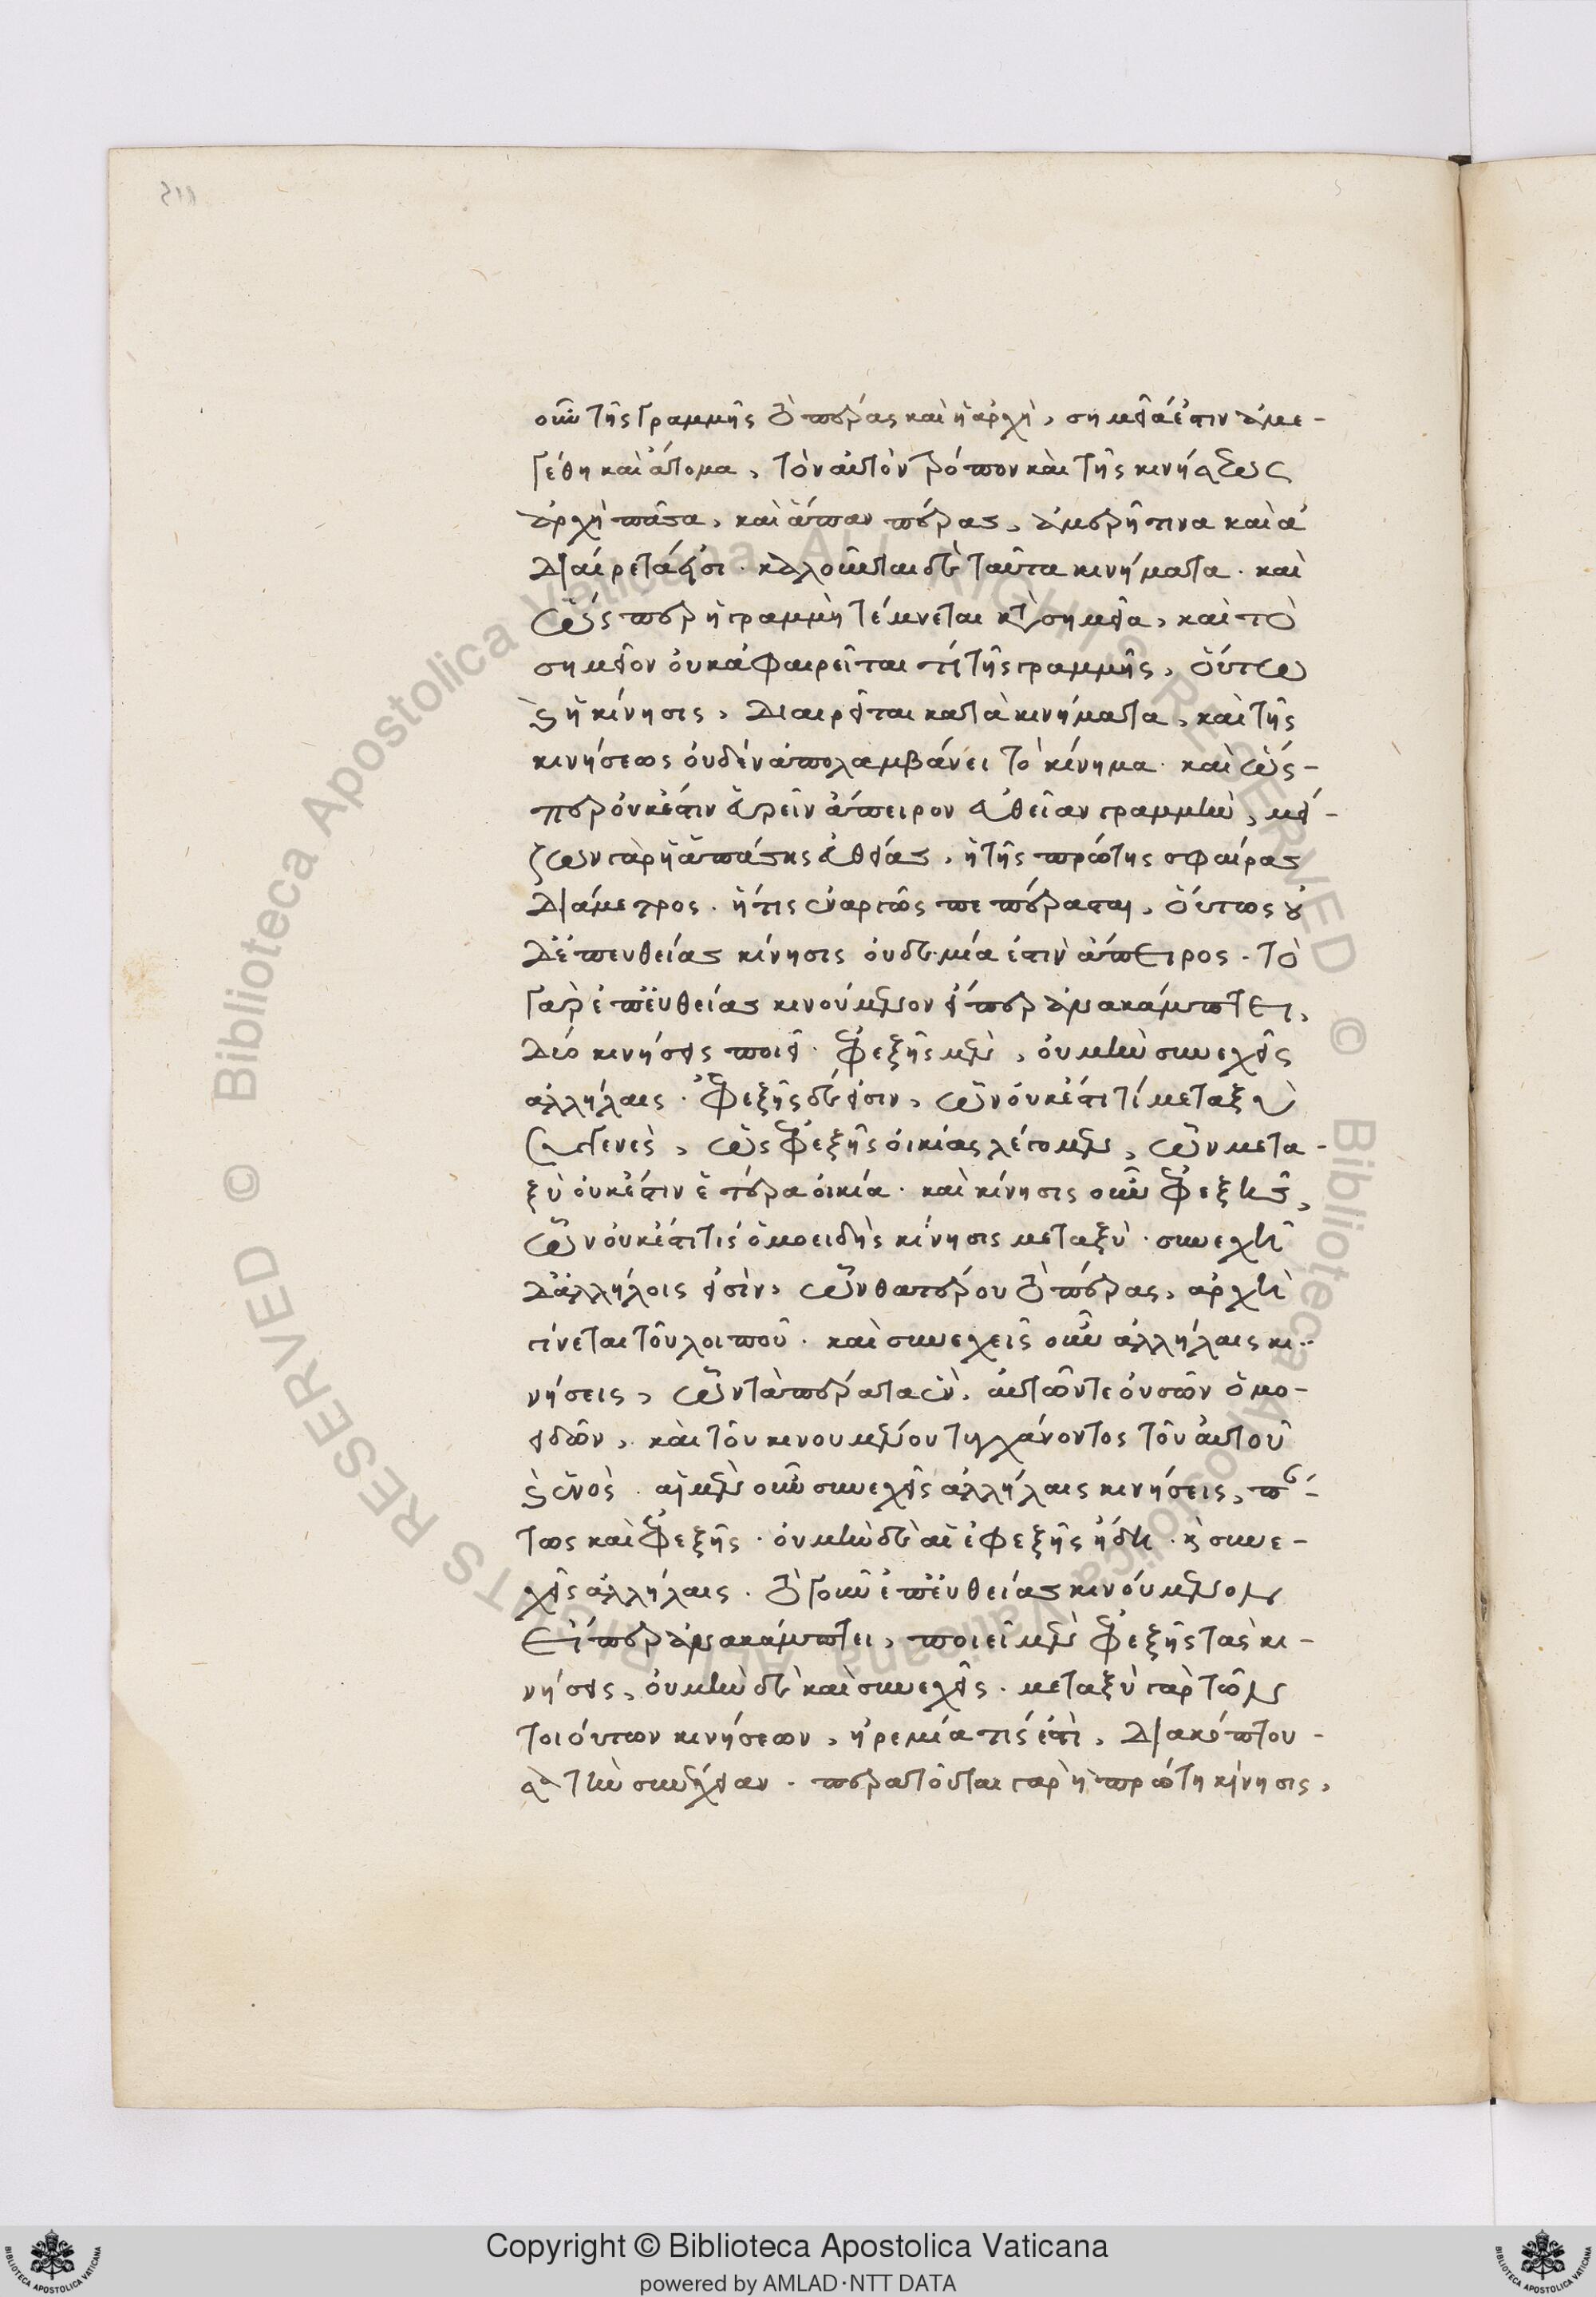 οὖν τῆς γραμμῆς τὸ πέρας καὶ ἡ ἀρχὴ, σημεῖά ἐστιν ἀμε-
γέθη καὶ ἄτομα, τὸν αὐτὸν τρόπον καὶ τῆς κινήσεως
ἀρχὴ πᾶσα, καὶ ἅπαν πέρας, ἀμερῆ τινα καὶ ἀ
διαίρετά εἰσι. καλοῦνται δὲ ταῦτα κινήματα. καὶ
ὥς περ ἡ γραμμὴ τέμνεται κατὰ σημεῖα, καὶ τὸ
σημεῖον οὐκ ἀφαιρεῖται τί τῆς γραμμῆς, οὕτω
καὶ ἡ κίνησις, διαιρεῖται κατὰ κινήματα, καὶ τῆς
κινήσεως οὐδὲν ἀπολαμβάνει τὸ κίνημα. καὶ ὥς-
περ οὐκ ἔστιν εὑρεῖν ἄπειρον εὐθεῖαν γραμμὴν, μεί-
ζων γὰρ ἡ ἁπάσης εὐθείας, ἡ τῆς πρώτης σφαίρας
διάμετρος. ἥτις ἐναργῶς πεπέρασται, οὕτως οὐ
δ' ἐπ' ευθείας κίνησις οὐδεμία ἐστὶν ἄπειρος. τὸ
γὰρ ἐπ' εὐθείας κινούμενον εἴπερ ἀνακάμπτει,
διὸ κινήσεις ποιεῖ. ἐφεξῆς μὲν, οὐ μὴν συνεχεῖς
ἀλλήλαις. Ἐφεξῆς δέ εἰσιν, ὧν οὐκ ἔστι τί μεταξὺ
συγγενὲς, ὡς ἐφεξῆς οἰκίας λέγομεν, ὧν μετα-
ξὺ οὐκ ἔστιν ἑτέρα οἰκία. καὶ κίνησις οὖν ἐφεξῆς,
ὧν οὐκ ἔστι τις ὁμοειδὴς κίνησις μεταξὺ. συνεχῆ
δ' ἀλλήλοις εἰσὶν, ὧν θατέρου τὸ πέρας, ἀρχὴ
γίνεται τοῦ λοιποῦ. καὶ συνεχεῖς οὖν ἀλλήλαις κι-
νήσεις, ὧν τὰ πέρατα ἓν, αὐτῶν τε οὐσῶν ὁμο-
ειδῶν, καὶ τοῦ κινουμένου τυγχάνοντος τοῦ αὐτοῦ
καὶ ἑνὸς. αἱ μὲν οὖν συνεχεῖς ἀλλήλαις κινήσεις, πάν-
τως καὶ ἐφεξῆς. οὐ μὴν δὲ αἱ ἐφεξῆς ἤδη. καὶ συνε-
χεῖς ἀλλήλαις. τὸ γοῦν ἐπ' εὐθείας κινούμενον
εἴπερ ἀνακάμπτει, ποιεῖ μὲν ἐφεξῆς τὰς κι-
νήσεις, οὐ μὴν δὲ καὶ συνεχεῖς. μεταξὺ γὰρ τῶν
τοιούτων κινήσεων, ἠρεμία τίς ἐστὶ, διακόπτου-
σα τὴν συνέχειαν. περατοῦται γὰρ ἡ πρώτη κίνησις,
Copyright © Biblioteca Apostolica Vaticana
powered by AMLAD·NTT DATA